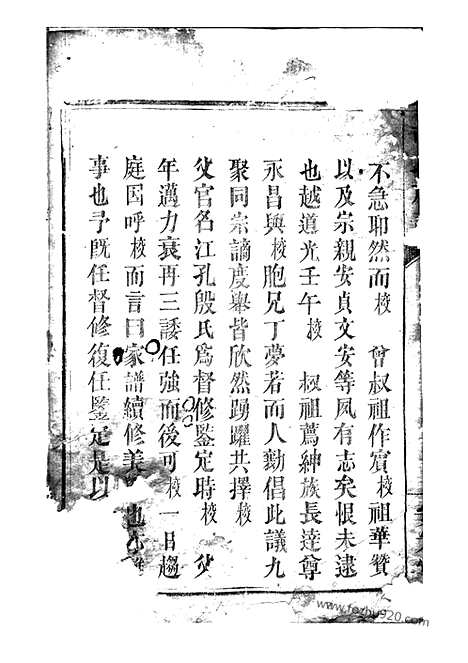 不急耶然而校 曾叔祖作賓校祖華贊
以及宗親安貞文安等夙有志矣恨未逮
也越道光壬午校 叔祖薦紳族長達尊
永昌與校胞兄丁夢若而人勷倡此議九
聚同宗謫度舉皆欣然踴躍共擇校
父官名江孔殷氏為督修鑒定時校 父
年邁力衰再三諉任強而後可校一日趨
庭因呼校而言曰家譜續修美 也
事也予既任督修復任鑒定是以
www.fozhu920.com